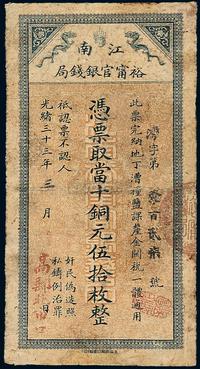 江南
裕甯官銀錢局
湯字第 壹百貳 號
此票完納地丁漕糧鹽課釐金關稅一體通用
憑票取當十銅元伍拾枚整
光緒三十三年 三 月 日
祇認票不認人
奸民偽造照
私鑄例治罪